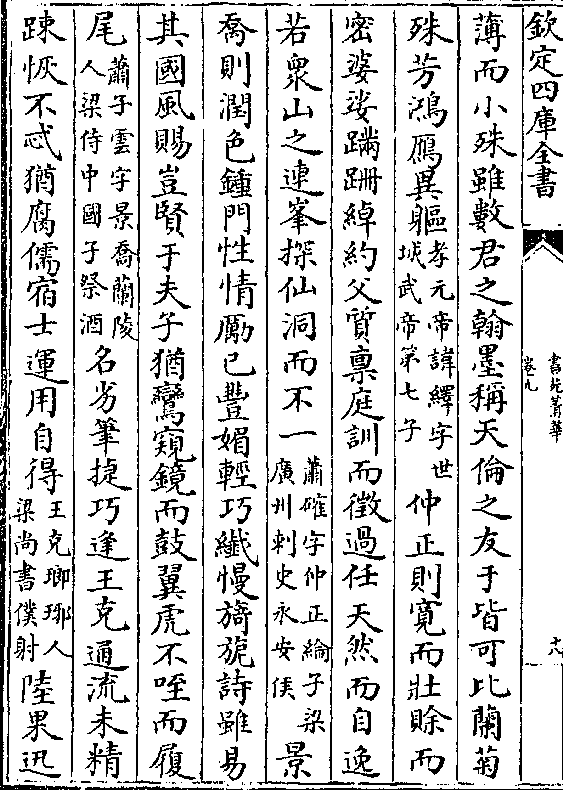 欽定四庫全書
書苑菁華
卷九
十八
薄而小殊雖數君之翰墨稱天倫之友于皆可比蘭菊
殊芳鴻鴈異軀孝元帝諱繹字世城武帝第七子仲正則寛而壯賖而
密婆娑蹣跚綽約父質稟庭訓而徴過任天然而自逸
若衆山之連峯探仙洞而不一蕭確字仲正綸子梁廣州刺史永安侯景
喬則潤色鍾門性情勵已豐媚輕巧纎慢旖旎詩雖易
其國風賜豈賢于夫子猶鸞窺鏡而鼓翼虎不咥而履
尾蕭子雲字景喬蘭陵人梁侍中國子祭酒名劣筆捷巧逢王克通流未精
踈恢不忒猶腐儒宿士運用自得王克瑯琊人梁尚書僕射陸果迅